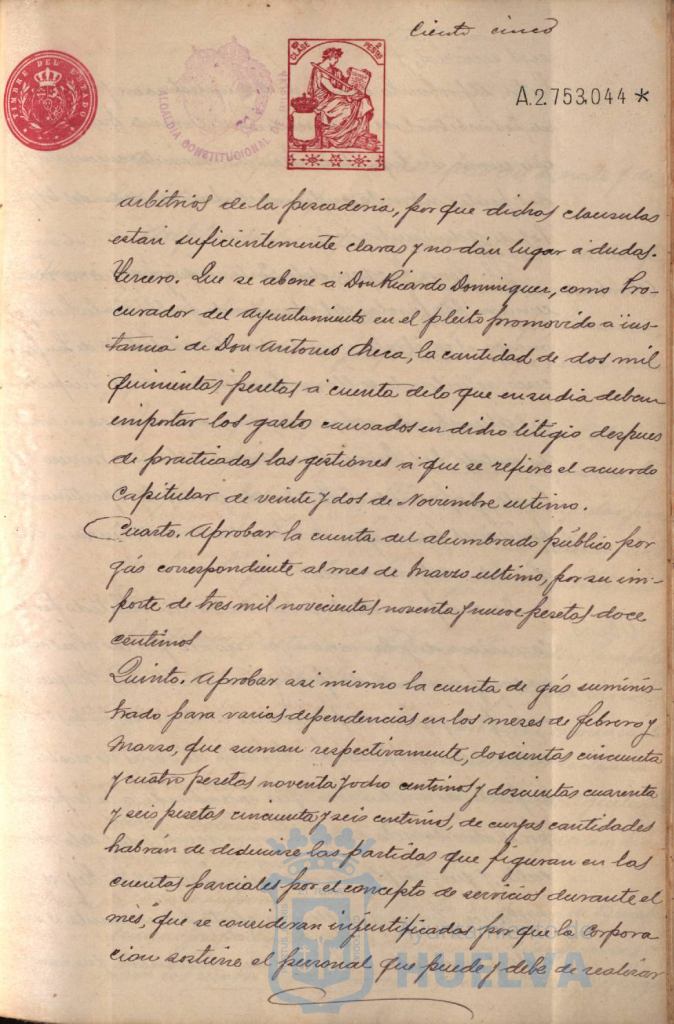 Ciento cinco
TIMBRE DEL ESTADO
ALCALDIA CONSTITUCIONAL DE
CLASE
PESETAS
A.2.753.044 *
arbitrios de la pescaderia, por que dichas clausulas
estan suficientemente claras y no dán lugar á dudas.
Tercero. Que se abone á Don Ricardo Dominguez, como Pro-
curador del Ayuntamiento en el pleito promovido á ins-
tancia de Don Antonio Checa, la cantidad de dos mil
quinientas pesetas á cuenta de lo que en su dia deban
importar los gastos causados en dicho litigio despues
de practicadas las gestiones á que se refiere el acuerdo
capitular de veinte y dos de Noviembre ultimo.
Cuarto. Aprobar la cuenta del alumbrado público por
gás correspondiente al mes de Marzo ultimo, por su im-
porte de tres mil novecientas noventa y nueve pesetas doce
centimos
Quinto. Aprobar asi mismo la cuenta de gás suminis-
trado para varias dependencias en los meses de febrero y
Marzo, que suman respectivamente, doscientas cincuenta
y cuatro pesetas noventa y ocho centimos y doscientas cuarenta
y seis pesetas cincuenta y seis centimos, de cuyas cantidades
habrán de deducirse las partidas que figuran en las
cuentas parciales por el concepto de servicios durante el
mes, que se consideran injustificadas por que la Corpora
cion sostiene el personal que puede y debe de realizar
Ayuntamiento de
HUELVA